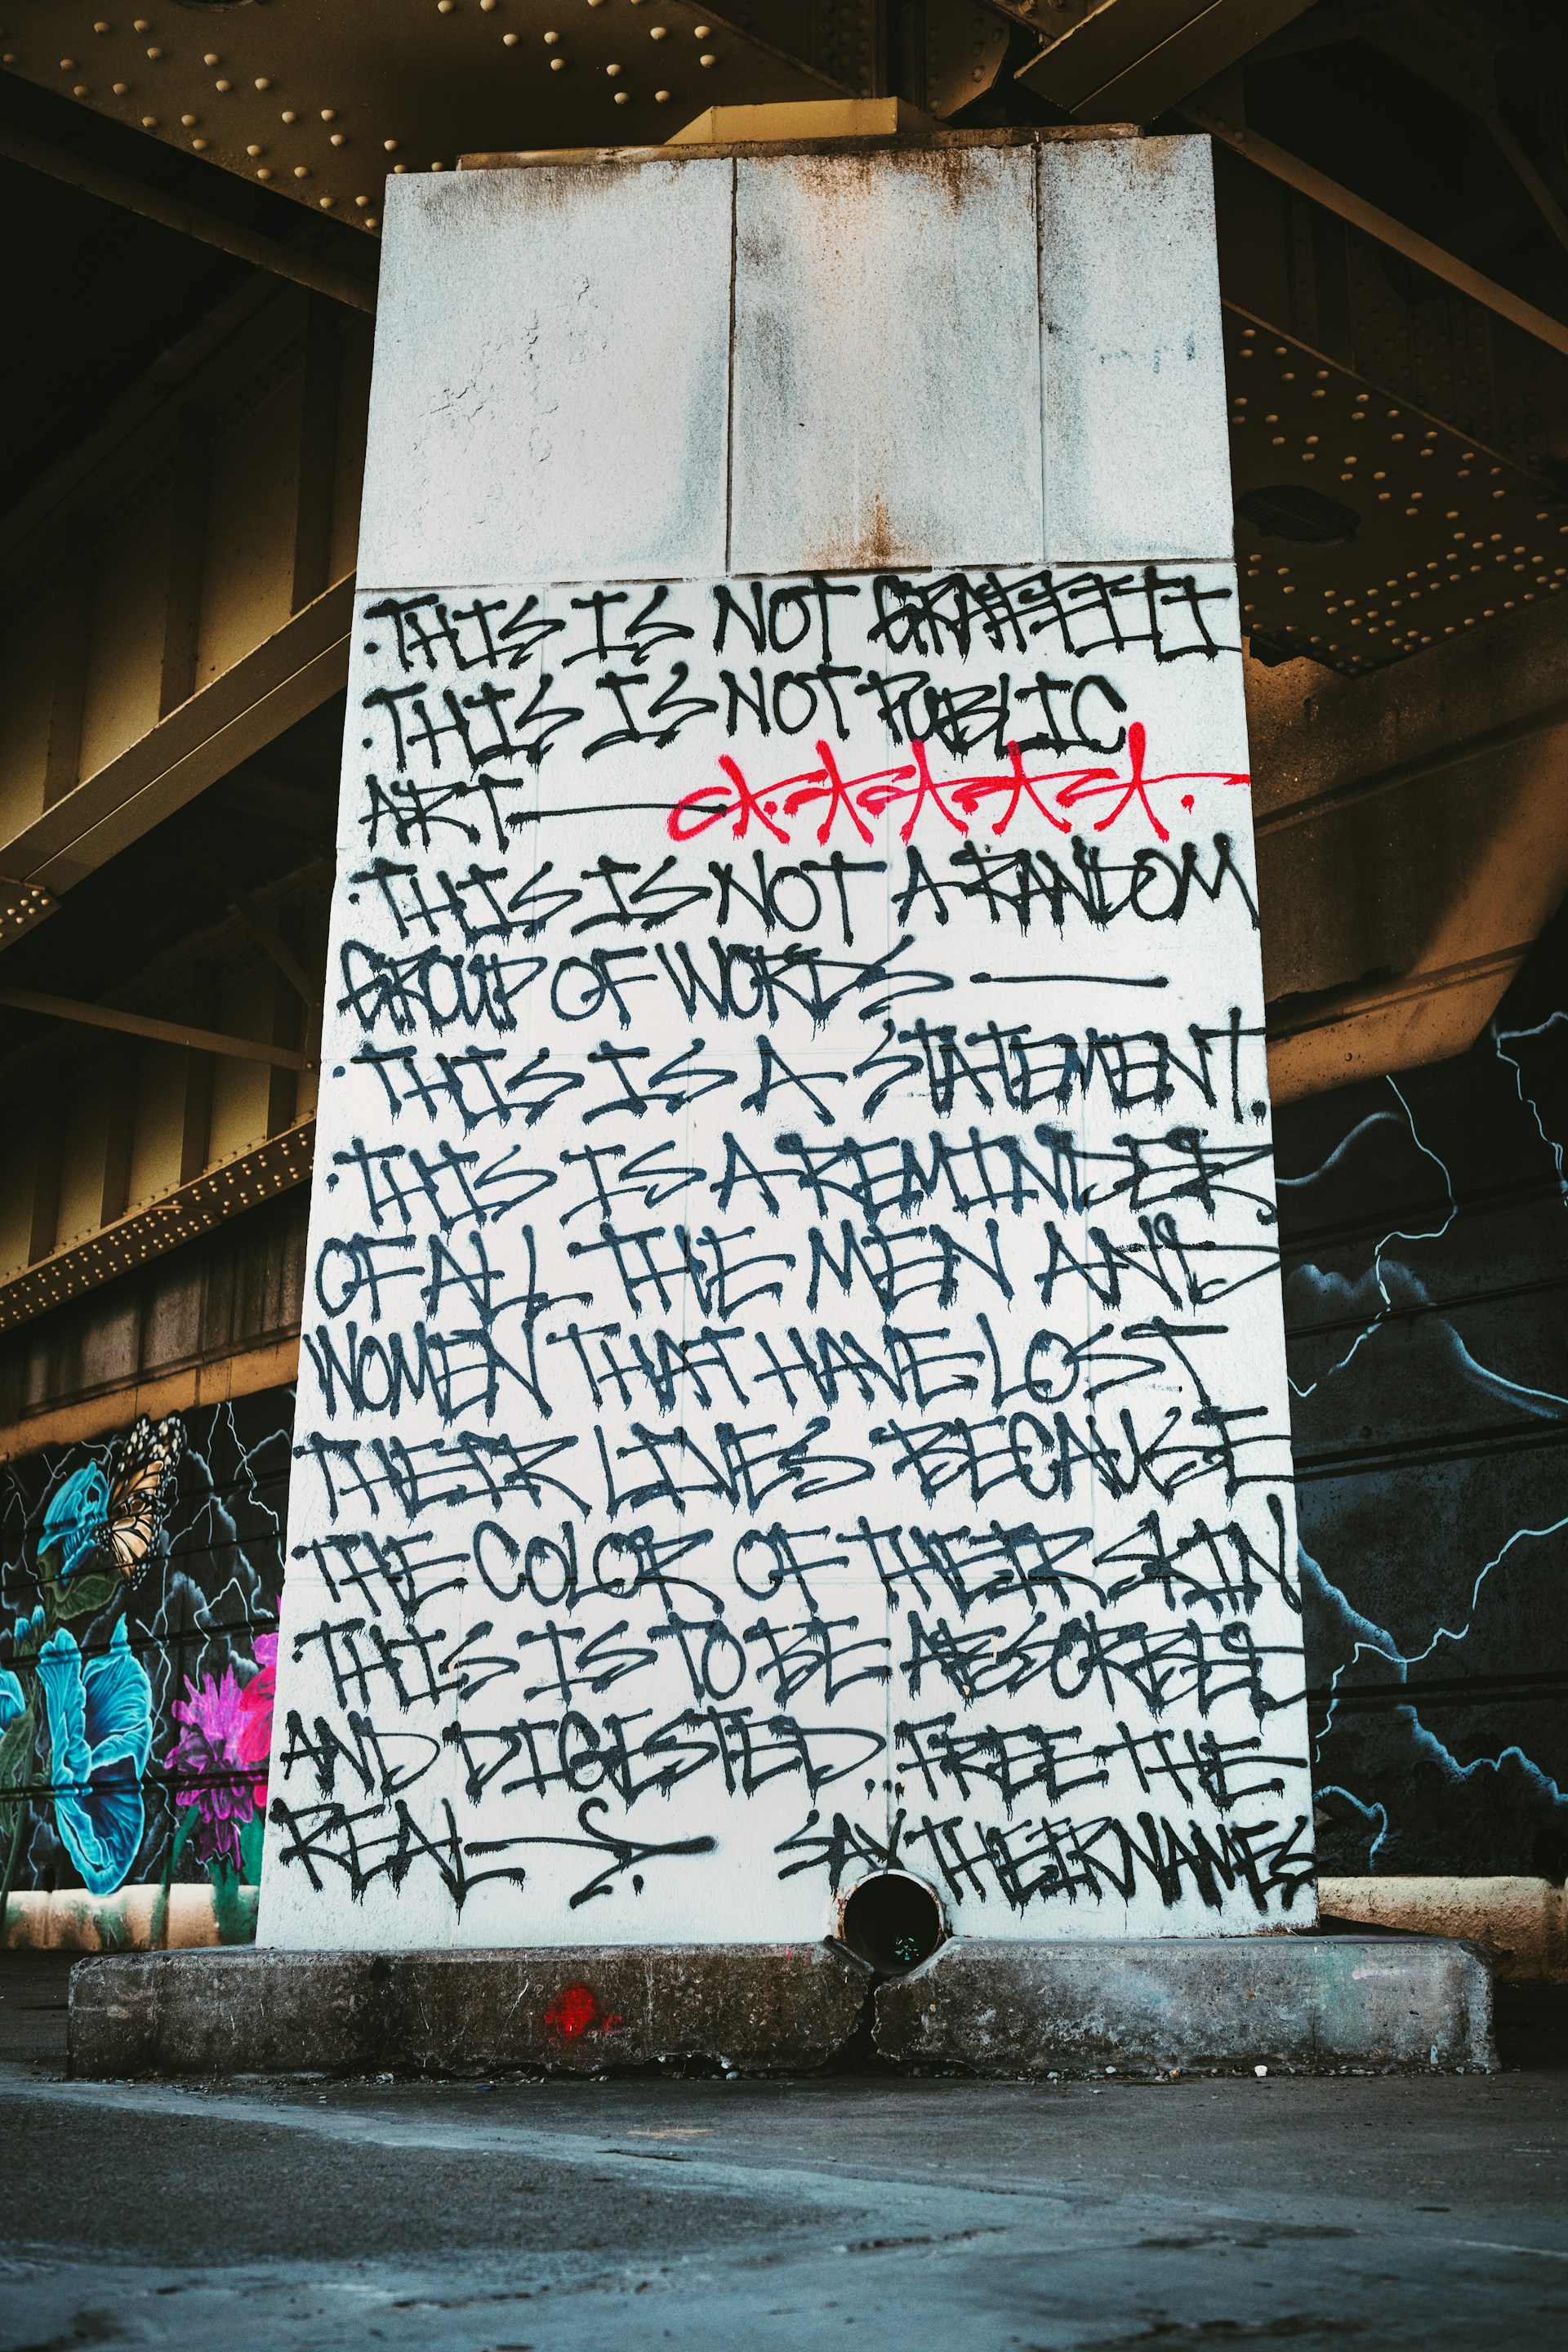 ·THIS IS NOT GRAFFITI
·THIS IS NOT PUBLIC
ART—
·THIS IS NOT A RANDOM
GROUP OF WORDS —
·THIS IS A STATEMENT.
·THIS IS A REMINDER
OF ALL THE MEN AND
WOMEN THAT HAVE LOST
THEIR LIVES BECAUSE
THE COLOR OF THEIR SKIN
·THIS IS TO BE ABSORBED
AND DIGESTED...FREE THE
REAL SAY THEIR NAMES